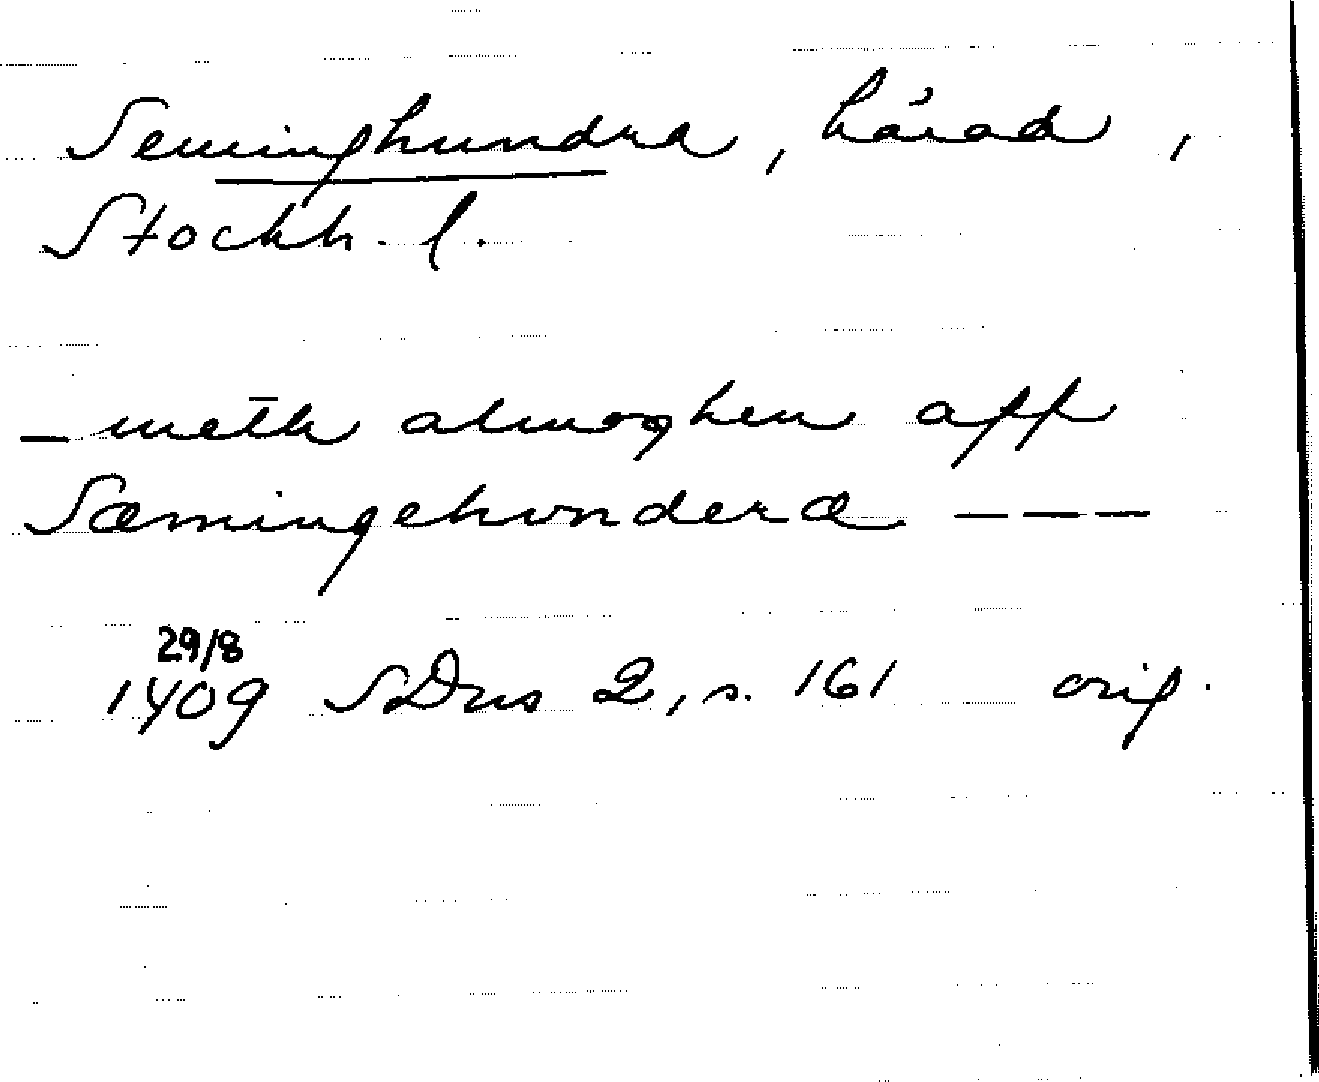 Seminghundra, härad,
Stockh. l.
— meth almoghen aff
Sæmingehundera — — —
29/8
1409 SDns 2, s. 161 orig.